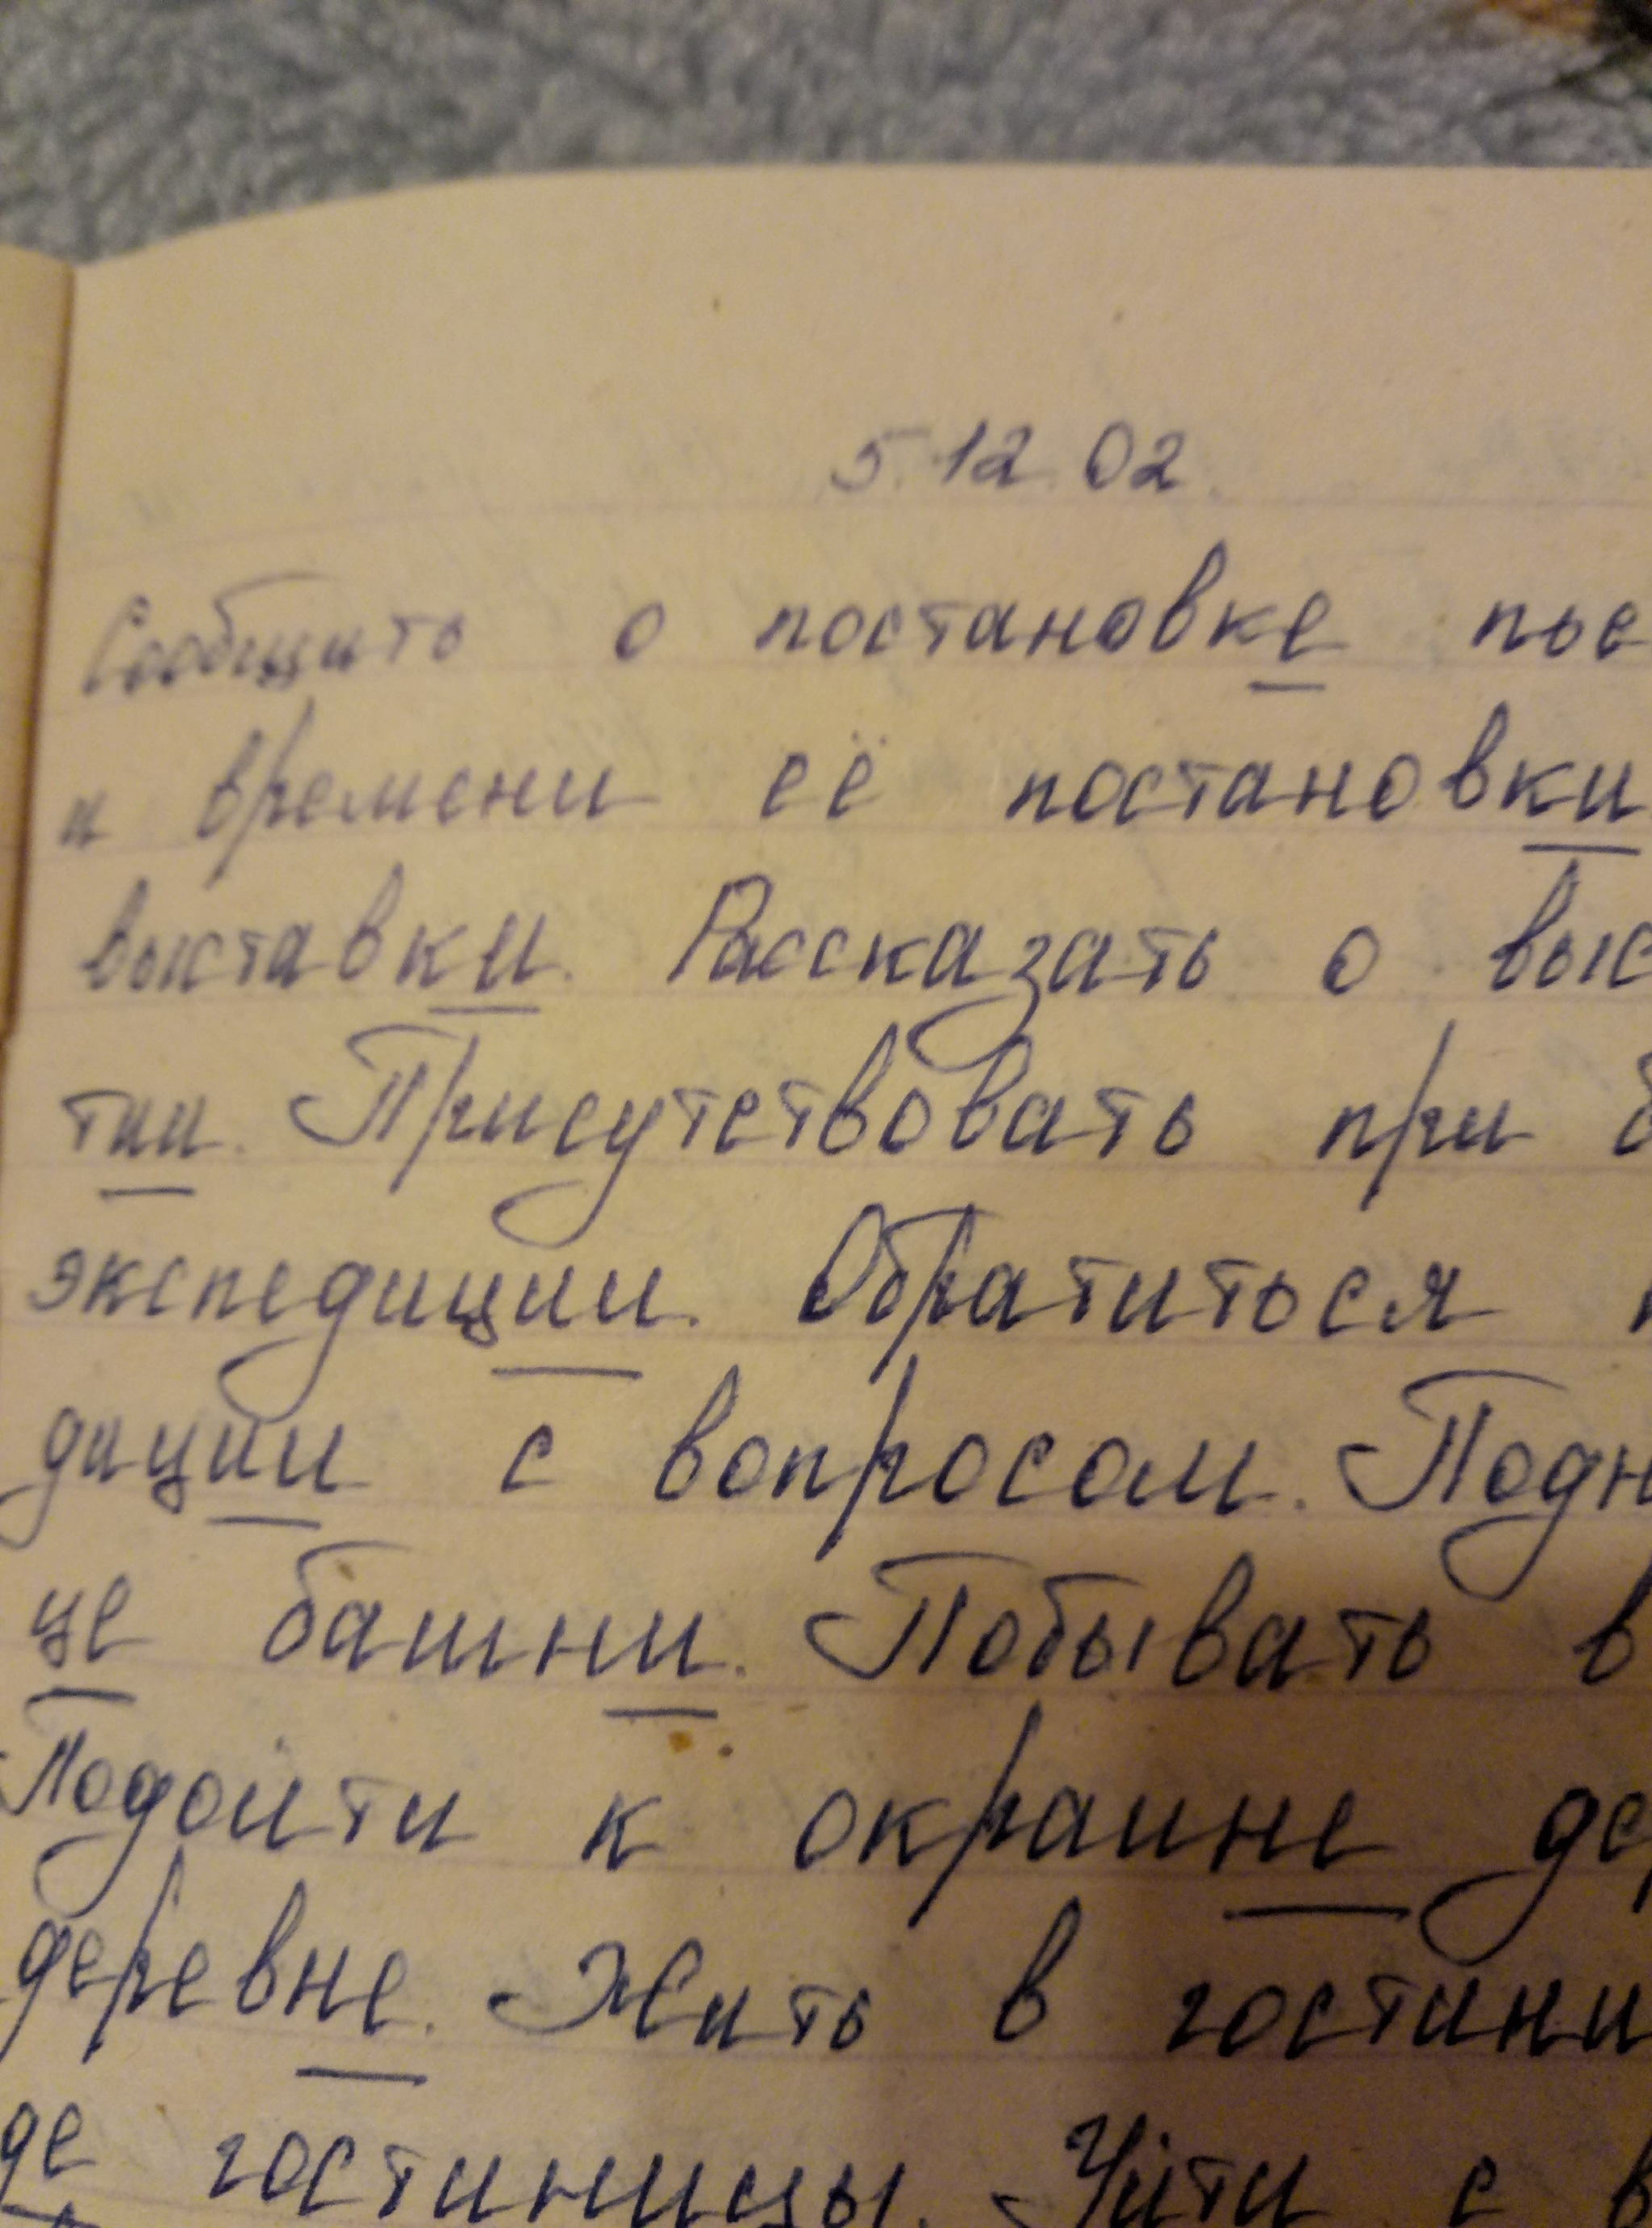 5.12.02.
Сообщить о постановке пье
и времени её постановки
выставки. Рассказать о выс
тии. Присутствовать при
экспедиции. Обратиться
диции с вопросом. Подн
це башни. Побывать в
Подойти к окраине де
деревне. Жить в гостини
де гостиницы. Уйти с в